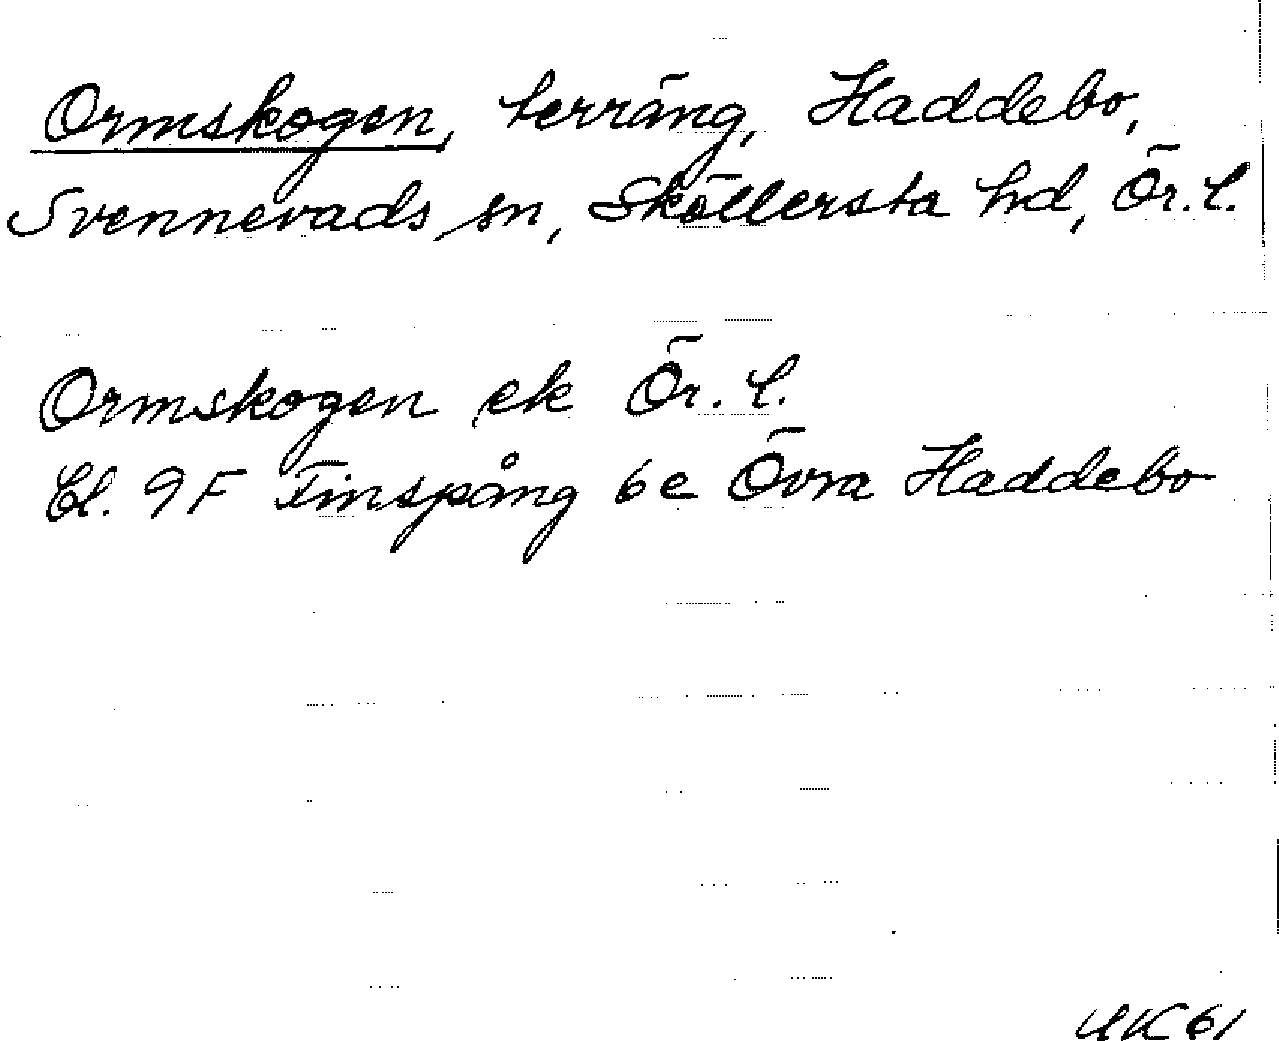 Ormskogen, terräng, Haddebo,
Svennevads sn, Sköllersta hd, Ör. l.
Ormskogen ek Ör. l.
Bl. 9F Finspång 6e Övra Haddebo